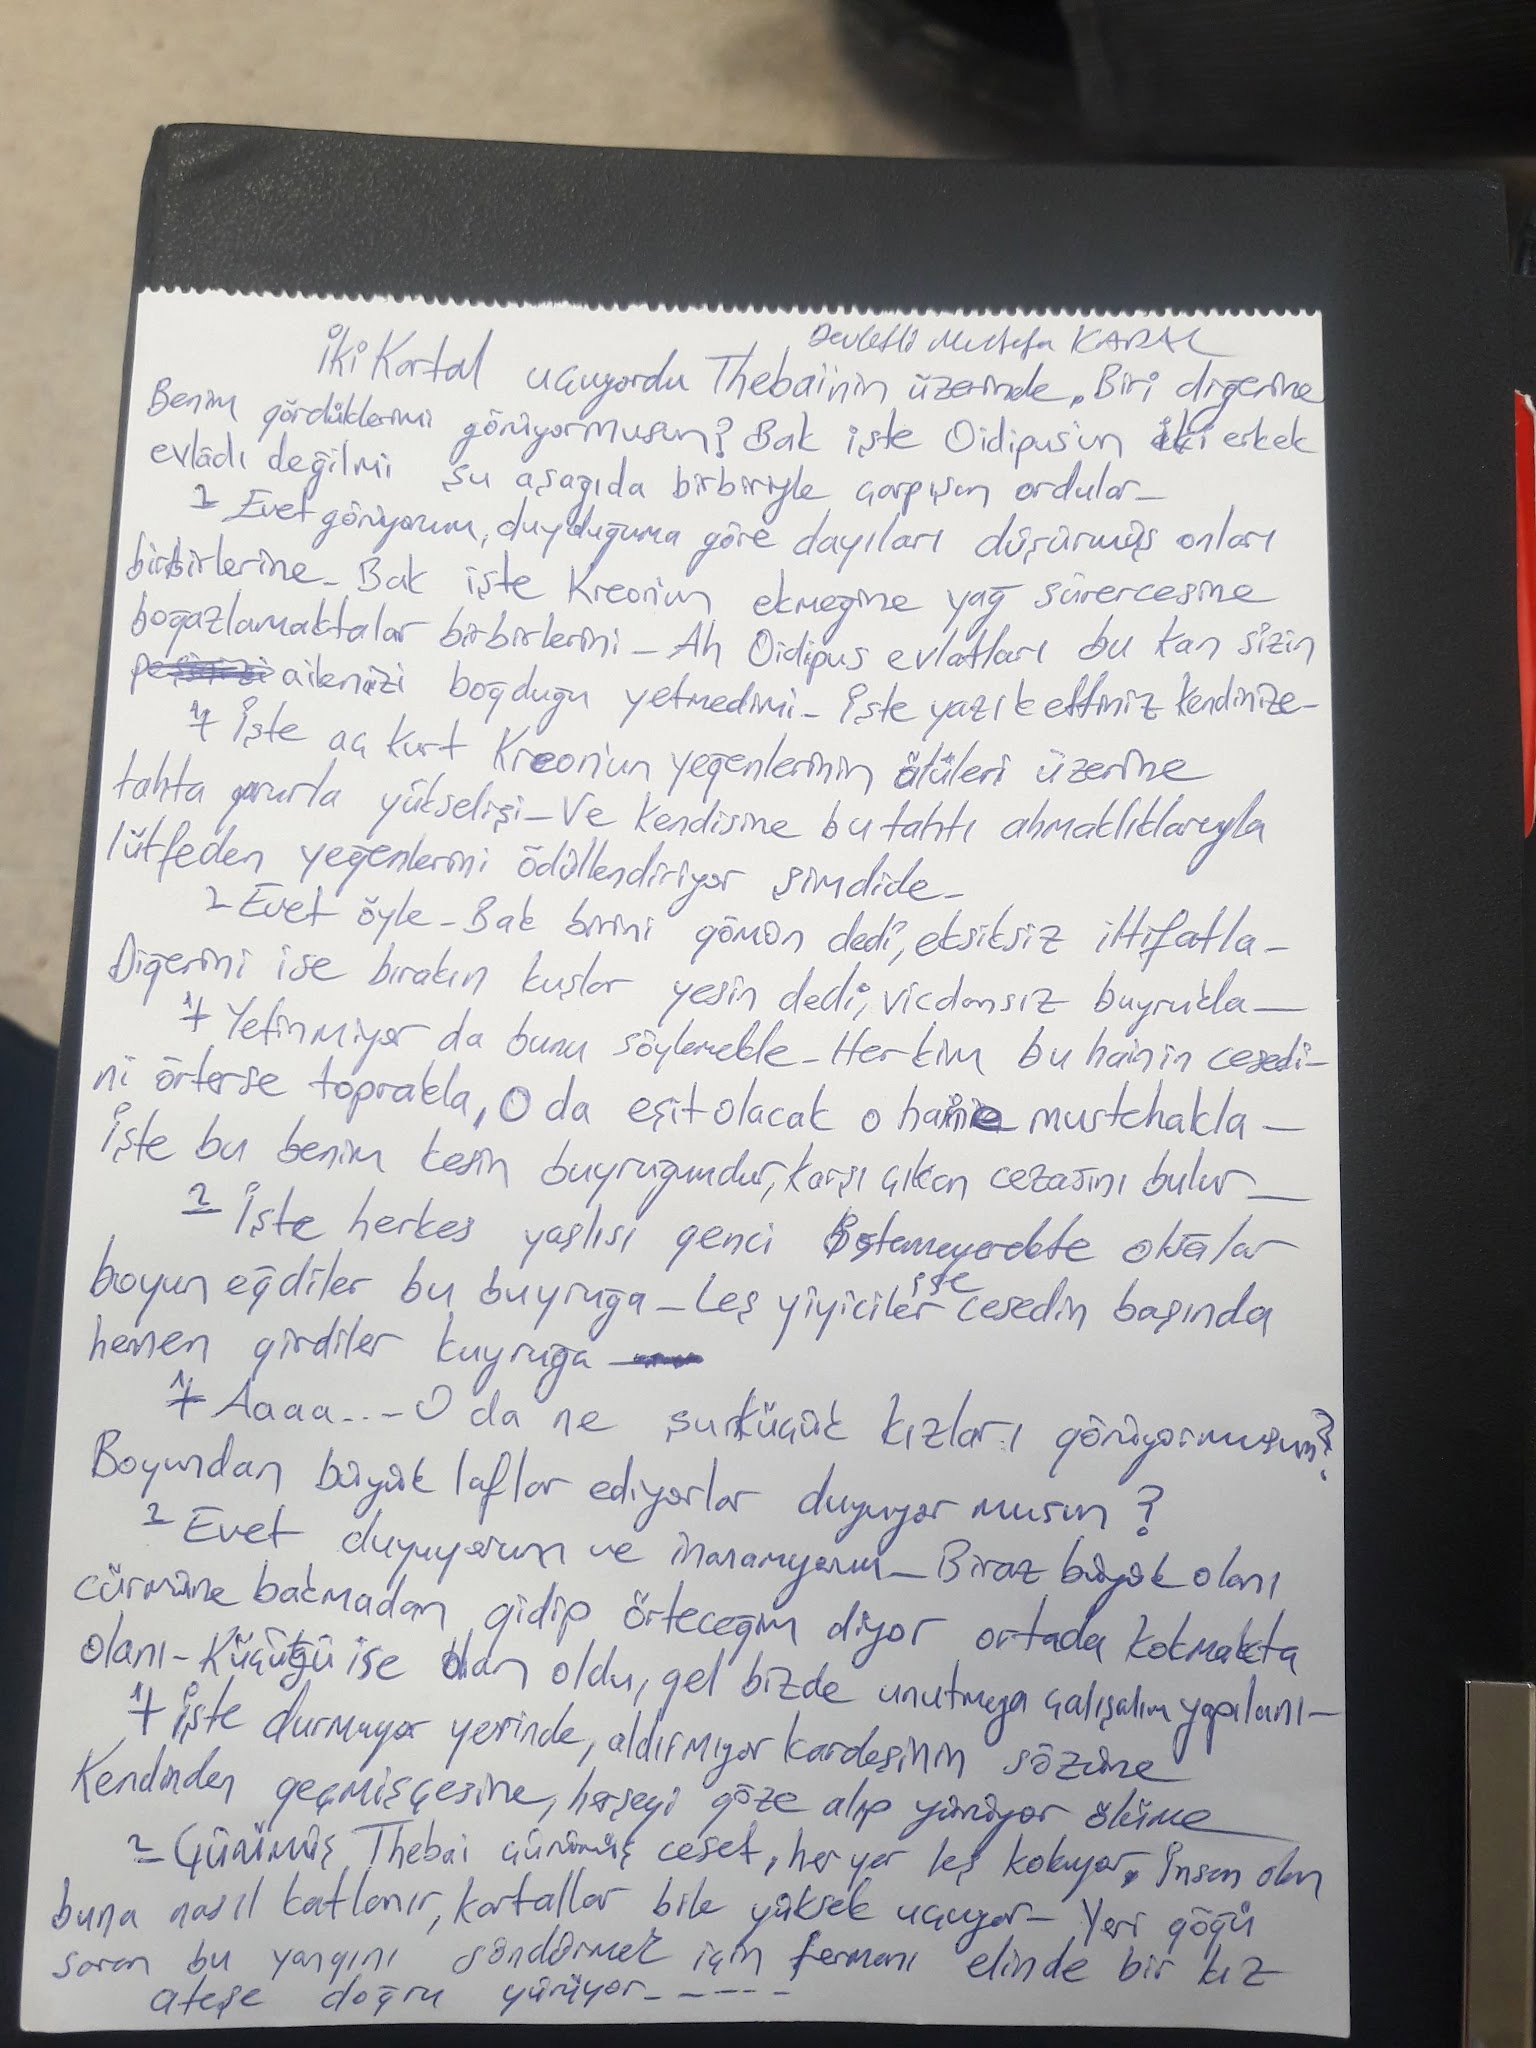 Devletli Mustafa KARAL
İki Kartal uçuyordu Thebai'nin üzerinde. Biri diğerine
Benim gördüklerimi görüyormusun? Bak işte Oidipus'un iki erkek
evladı değilmi şu aşağıda birbiriyle çarpışan ordular_
2 Evet görüyorum, duyduğuma göre dayıları düşürmüş onları
birbirlerine_ Bak işte Kreon'un ekmeğine yağ sürercesine
boğazlamaktalar birbirlerini_ Ah Oidipus evlatları bu kan sizin
ailenizi boğduğu yetmedimi_ İşte yazık ettiniz kendinize_
1 İşte aç kurt Kreon'un yeğenlerinin ölüleri üzerine
tahta gururla yükselişi_ Ve kendisine bu tahtı ahmaklıklarıyla
lütfeden yeğenlerini ödüllendiriyor şimdide_
2 Evet öyle_ Bak birini gömün dedi, eksiksiz iltifatla_
Diğerini ise bırakın kuşlar yesin dedi, vicdansız buyrukla_
1 Yetinmiyor da bunu söylemekle_ Her kim bu hainin cesedi-
ni örterse toprakla, O da eşit olacak o haine mustehakla_
İşte bu benim kesin buyruğumdur, karşı çıkan cezasını bulur_
2 İşte herkes yaşlısı genci istemeyerekte olsalar
boyun eğdiler bu buyruğa_ Leş yiyiciler ise cesedin başında
hemen girdiler kuyruğa
1 Aaaa...- O da ne şu küçük kızları görüyormusun?
Boyundan büyük laflar ediyorlar duyuyor musun?
2 Evet duyuyorum ve inanamıyorum_ Biraz büyük olanı
cürmüne bakmadan gidip örteceğim diyor ortada kokmakta
olanı- Küçüğü ise olan oldu, gel bizde unutmaya çalışalım yapılanı_
1 İşte durmuyor yerinde, aldırmıyor kardeşinin sözüne
Kendinden geçmişçesine, herşeyi göze alıp yürüyor ölüme
2 Çürümüş Thebai çürümüş ceset, her yer leş kokuyor. İnsan olan
buna nasıl katlanır, kartallar bile yüksek uçuyor_ Yeri göğü
saran bu yangını söndürmek için fermanı elinde bir kız
ateşe doğru yürüyor------